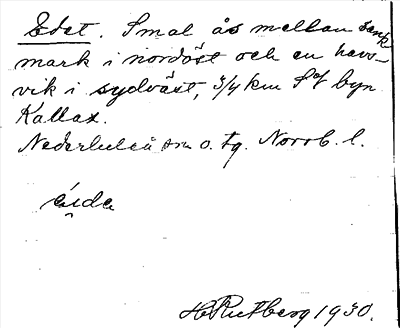 Edet. Smal ås mellan sank-
mark i nordöst och en havs-
vik i sydväst, 3/4 km S of byn
Kallax.
Nederluleå sn o. tg. Norrb. l.
H Rutberg 1930.